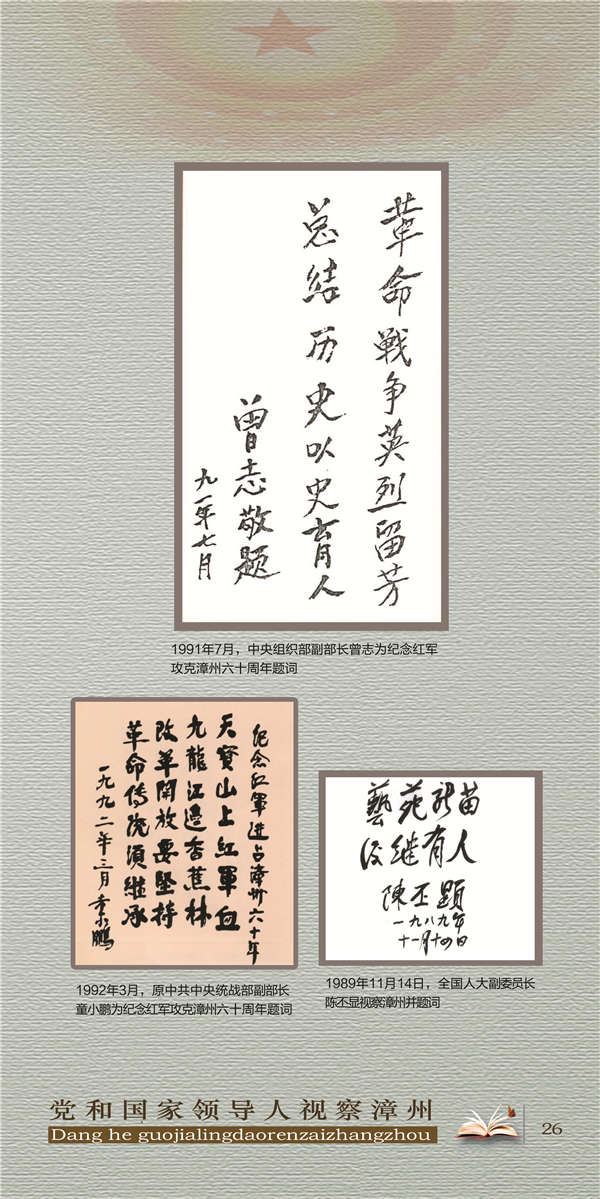 革命戦争英烈留芳
总结历史以史育人
曾志敬题
九一年七月
1991年7月，中央组织部副部长曾志为纪念红军
攻克漳州六十周年题词
纪念红軍进占漳州六十年
天寳山上红軍血
九龍江邊香蕉林
改革開放要堅持
革命传统須继承
一九九二年三月 童小鹏
1992年3月，原中共中央统战部副部长
童小鹏为纪念红军攻克漳州六十周年题词
藝苑新苗
后继有人
陳丕顕
一九八九年
十一月十四日
1989年11月14日，全国人大副委员长
陈丕显视察漳州并题词
党和国家领导人视察漳州
Dang he guojialingdaorenzaizhangzhou
26